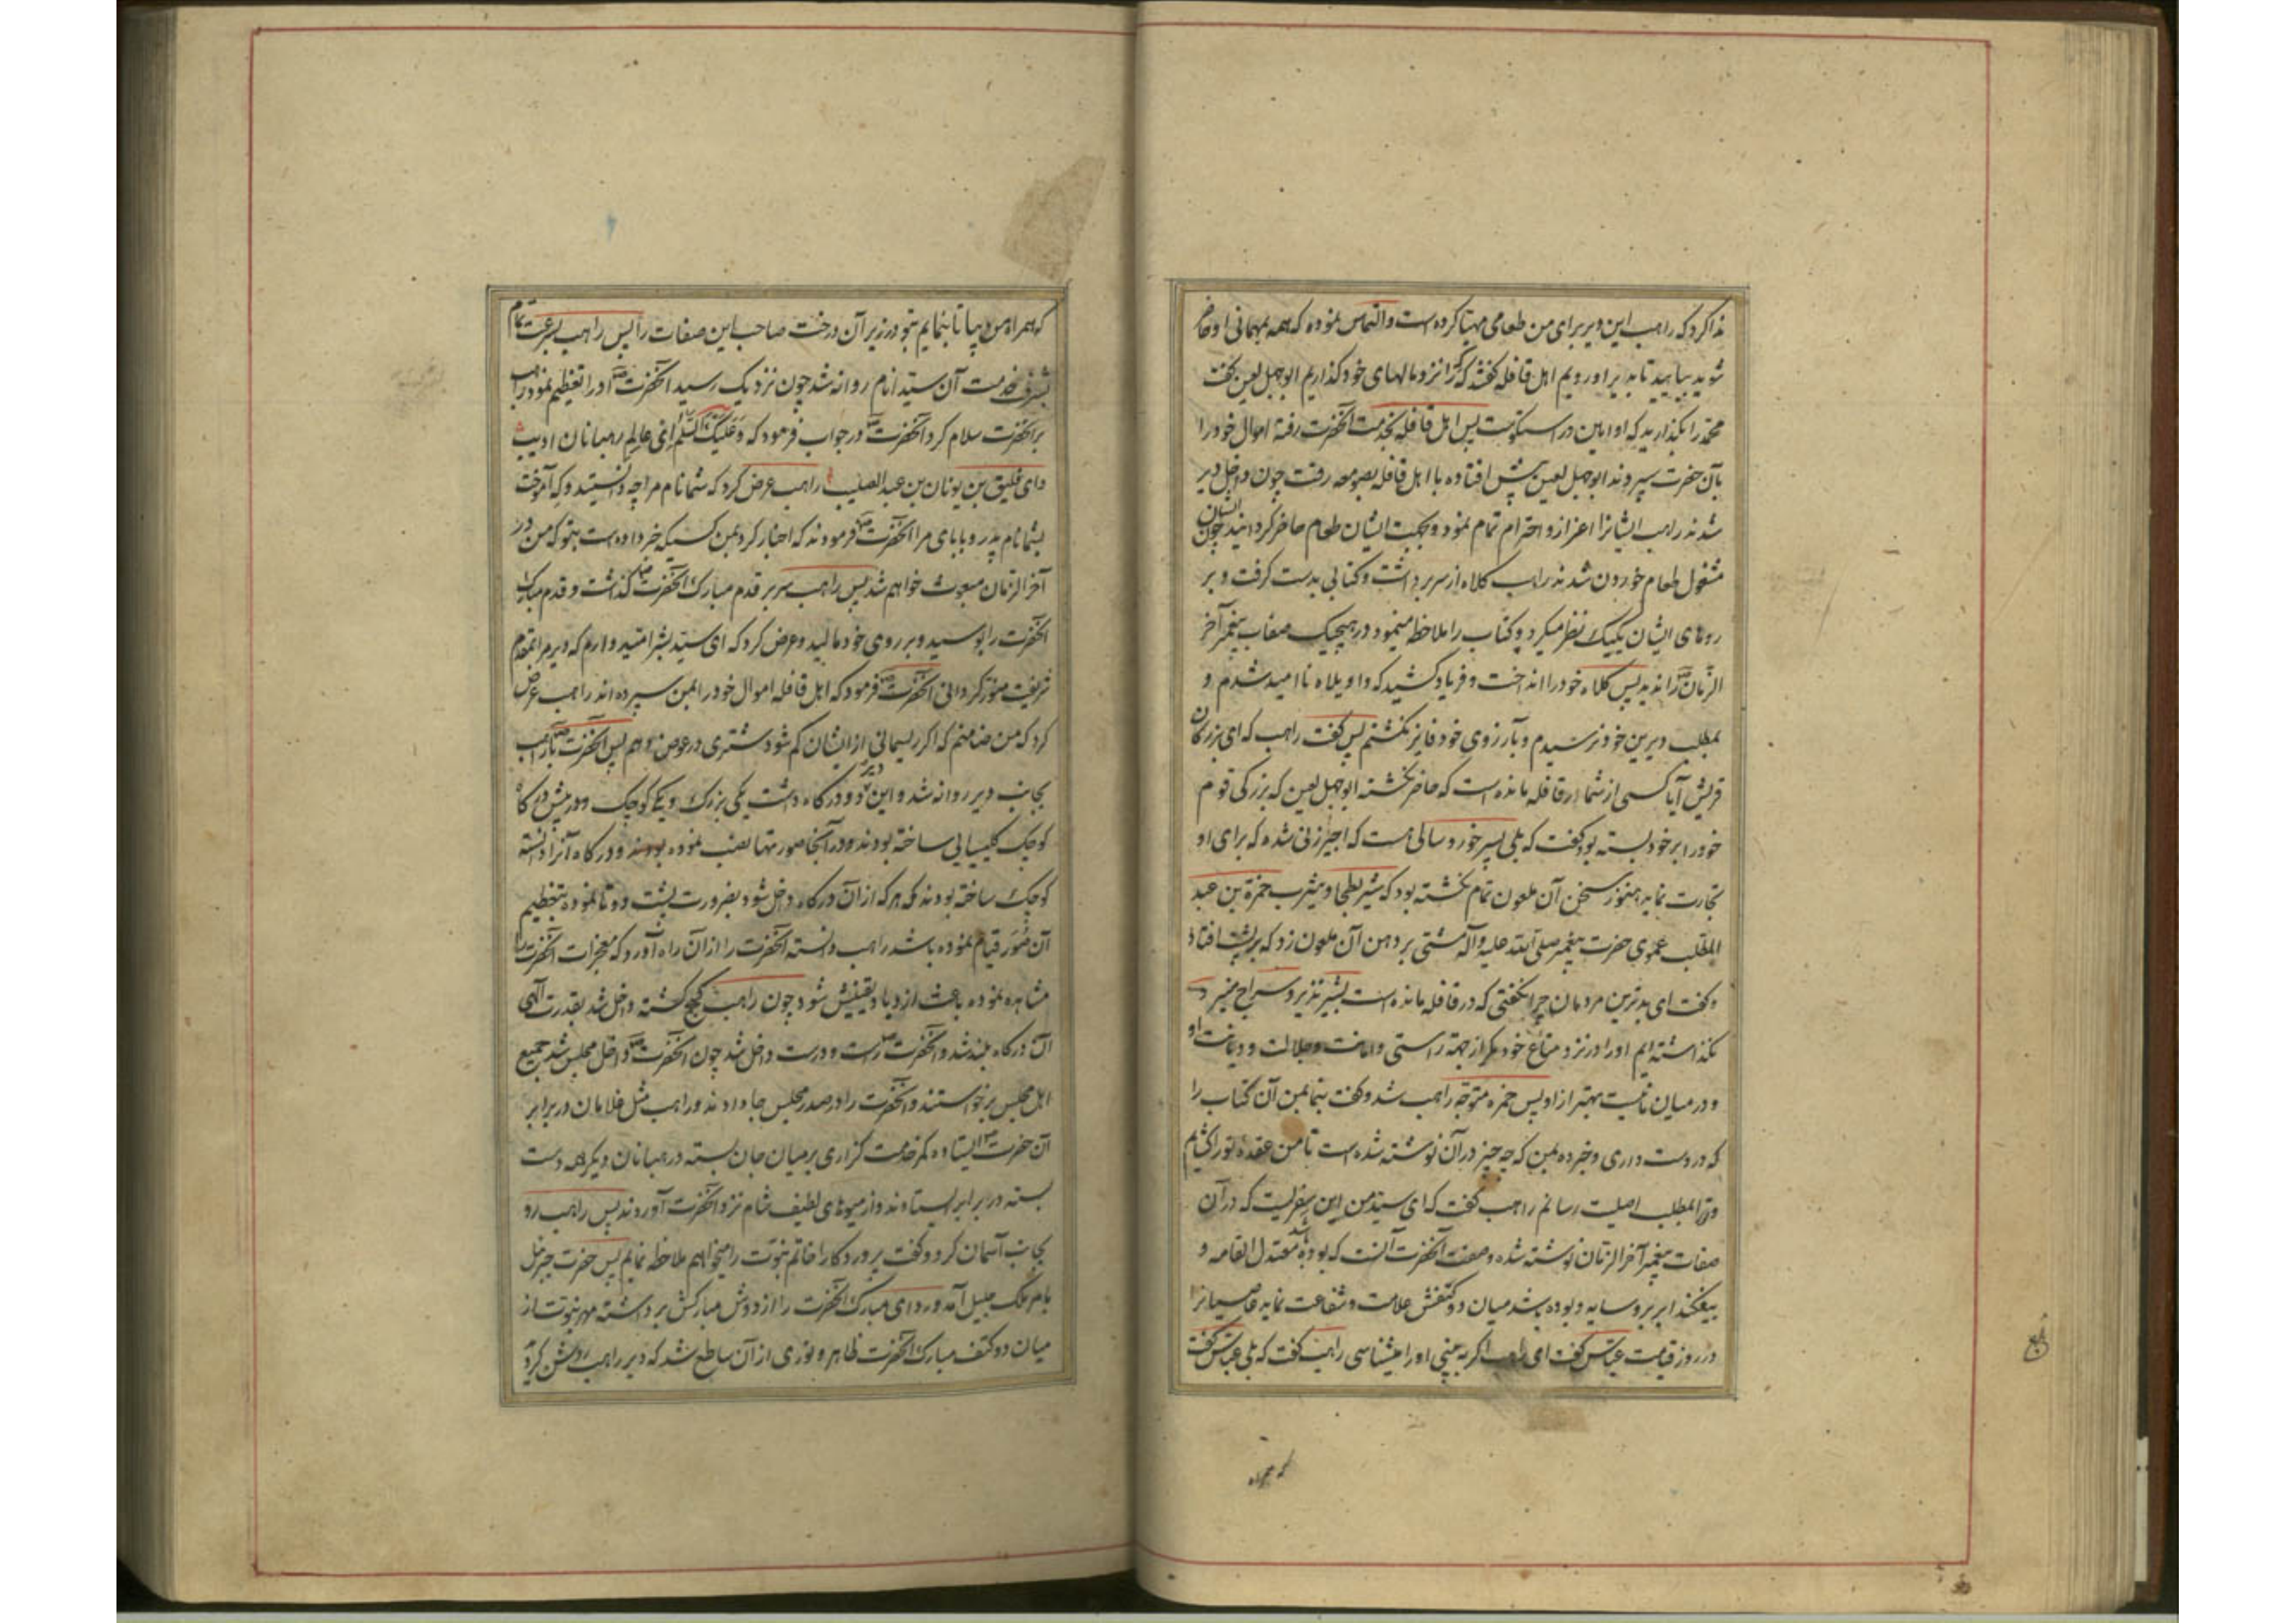 ندا کرد که راهب این دیر برای من طعامی مهیا کرده است و التماس نموده که همه بمهمانی او حاضر
شوید بیایید تا بدیر او رویم اهل قافله گفتند که را نزد مالهای خود گذاریم ابوجهل لعین گفت
محمد را بگذارید که او امین و راستگو است پس اهل قافله بخدمت آنحضرت رفته اموال خود را
بآن حضرت سپردند ابوجهل لعین پیش افتاده با اهل قافله بصومعه رفت چون داخل دیر
شدند راهب ایشانرا اعزاز و احترام تمام نمود و بجهت ایشان طعام حاضر گردانید چون ایشان
مشغول طعام خوردن شدند راهب کلاه از سر برداشت و کتابی بدست گرفت و بر
روهای ایشان یکیک نظر میکرد و کتاب را ملاحظه مینمود در هیچیک صفات پیغمبر آخر
الزمان را ندید پس کلاه خود را انداخت و فریاد کشید که واویلاه ناامید شدم و
بمطلب دیرین خود نرسیدم و بآرزوی خود فایز نگشتم پس گفت راهب که ای بزرگان
قریش آیا کسی از شما در قافله مانده است که حاضر نگشته ابوجهل لعین که بزرگی قوم
خود را بر خود بسته بود گفت که بلی پسر خورد سالی هست که اجیر زنی شده که برای او
تجارت نماید هنوز سخن آن ملعون تمام نگشته بود که شیر بطحا و یثرب حمزة بن عبد
المطلب عموی حضرت پیغمبر صلی الله علیه و آله مشتی بر دهن آن ملعون زد که بر پشت افتاد
و گفت ای بدترین مردمان چرا نگفتی که در قافله مانده است بشیر نذیر و سراج منیر و
نگذاشته ایم او را در نزد متاع خود مگر از جهة راستی و امانت و جلالت و دیانت او
و در میان ما نیست بهتر از او پس حمزه متوجه راهب شد و گفت بنما بمن آن کتاب را
که در دست داری و خبر ده بمن که چه چیز در آن نوشته شده است تا من عقده تو را گشایم
و ترا بمطلب اصلیت رسانم راهب گفت که ای سید من این سفریست که در آن
صفات پیغمبر آخر الزمان نوشته شده و صفت آنحضرت آنست که بوده باشد معتدل القامه و
بیفکند ابر بر او سایه و بوده باشد میان دو کتفش علامت و شفاعت نماید عاصیانرا
در روز قیامت عباس گفت ای راهب اگر به بینی او را میشناسی راهب گفت که بلی عباس گفت
که همراه
که همراه من بیا تا بنمایم بتو در زیر آن درخت صاحب این صفات را پس راهب بسرعت تمام
بشرف خدمت آن سید انام روانه شد چون نزدیک رسید آنحضرت او را تعظیم نمود راهب
بر آنحضرت سلام کرد آنحضرت در جواب فرمود که و علیک السلام ای عالم رهبانان ادیب
و ای فلیق بن یونان بن عبد الصلیب راهب عرض کرد که شما نام مرا چه دانستید و که آموخت
بشما نام پدر و بابای مرا آنحضرت فرمودند که اخبار کرد بمن کسیکه خبر داده است بتو که من در
آخر الزمان مبعوث خواهم شد پس راهب سر بر قدم مبارک آنحضرت گذاشت و قدم مبارک
آنحضرت را بوسید و بر روی خود مالید و عرض کرد که ای سید بشر امید دارم که دیر مرا بمقدم
شریفت منور گردانی آنحضرت فرمود که اهل قافله اموال خود را بمن سپرده اند راهب عرض
کرد که من ضامنم که اگر ریسمانی از ایشان کم شود شتری در عوض دهم پس آنحضرت با راهب
بجانب دیر روانه شد و این دیر دو درگاه داشت یکی بزرگ و یکی کوچک و در پیش درگاه
کوچک کلیسایی ساخته بودند و در آنجا صورتها نصب نموده بودند و درگاه آنرا دانسته
کوچک ساخته بودند که هر که از آن درگاه داخل شود بضرورت پشت دو تا نموده بتعظیم
آن صور قیام نموده باشد راهب دانسته آنحضرت را از آن راه آورد که معجزات آنحضرت را
مشاهده نموده باعث ازدیاد یقینش شود چون راهب کج گشته داخل شد بقدرت الهی
آن درگاه بلند شد و آنحضرت راست و درست داخل شد چون آنحضرت داخل مجلس شد جمیع
اهل مجلس برخواستند و آنحضرت را در صدر مجلس جا دادند و راهب مثل غلامان در برابر
آن حضرت ایستاده کمر خدمت گزاری بر میان جان بسته و رهبانان دیگر همه دست
بسته در برابر ایستادند و از میوهای لطیف شام نزد آنحضرت آوردند پس راهب رو
بجانب آسمان کرد و گفت پروردگارا خاتم نبوت را میخواهم ملاحظه نمایم پس حضرت جبرئیل
بامر ملک جلیل آمد و ردای مبارک آنحضرت را از دوش مبارکش برداشته مهر نبوت از
میان دو کتف مبارک آنحضرت ظاهر و نوری از آن ساطع شد که دیر راهب روشن کرد